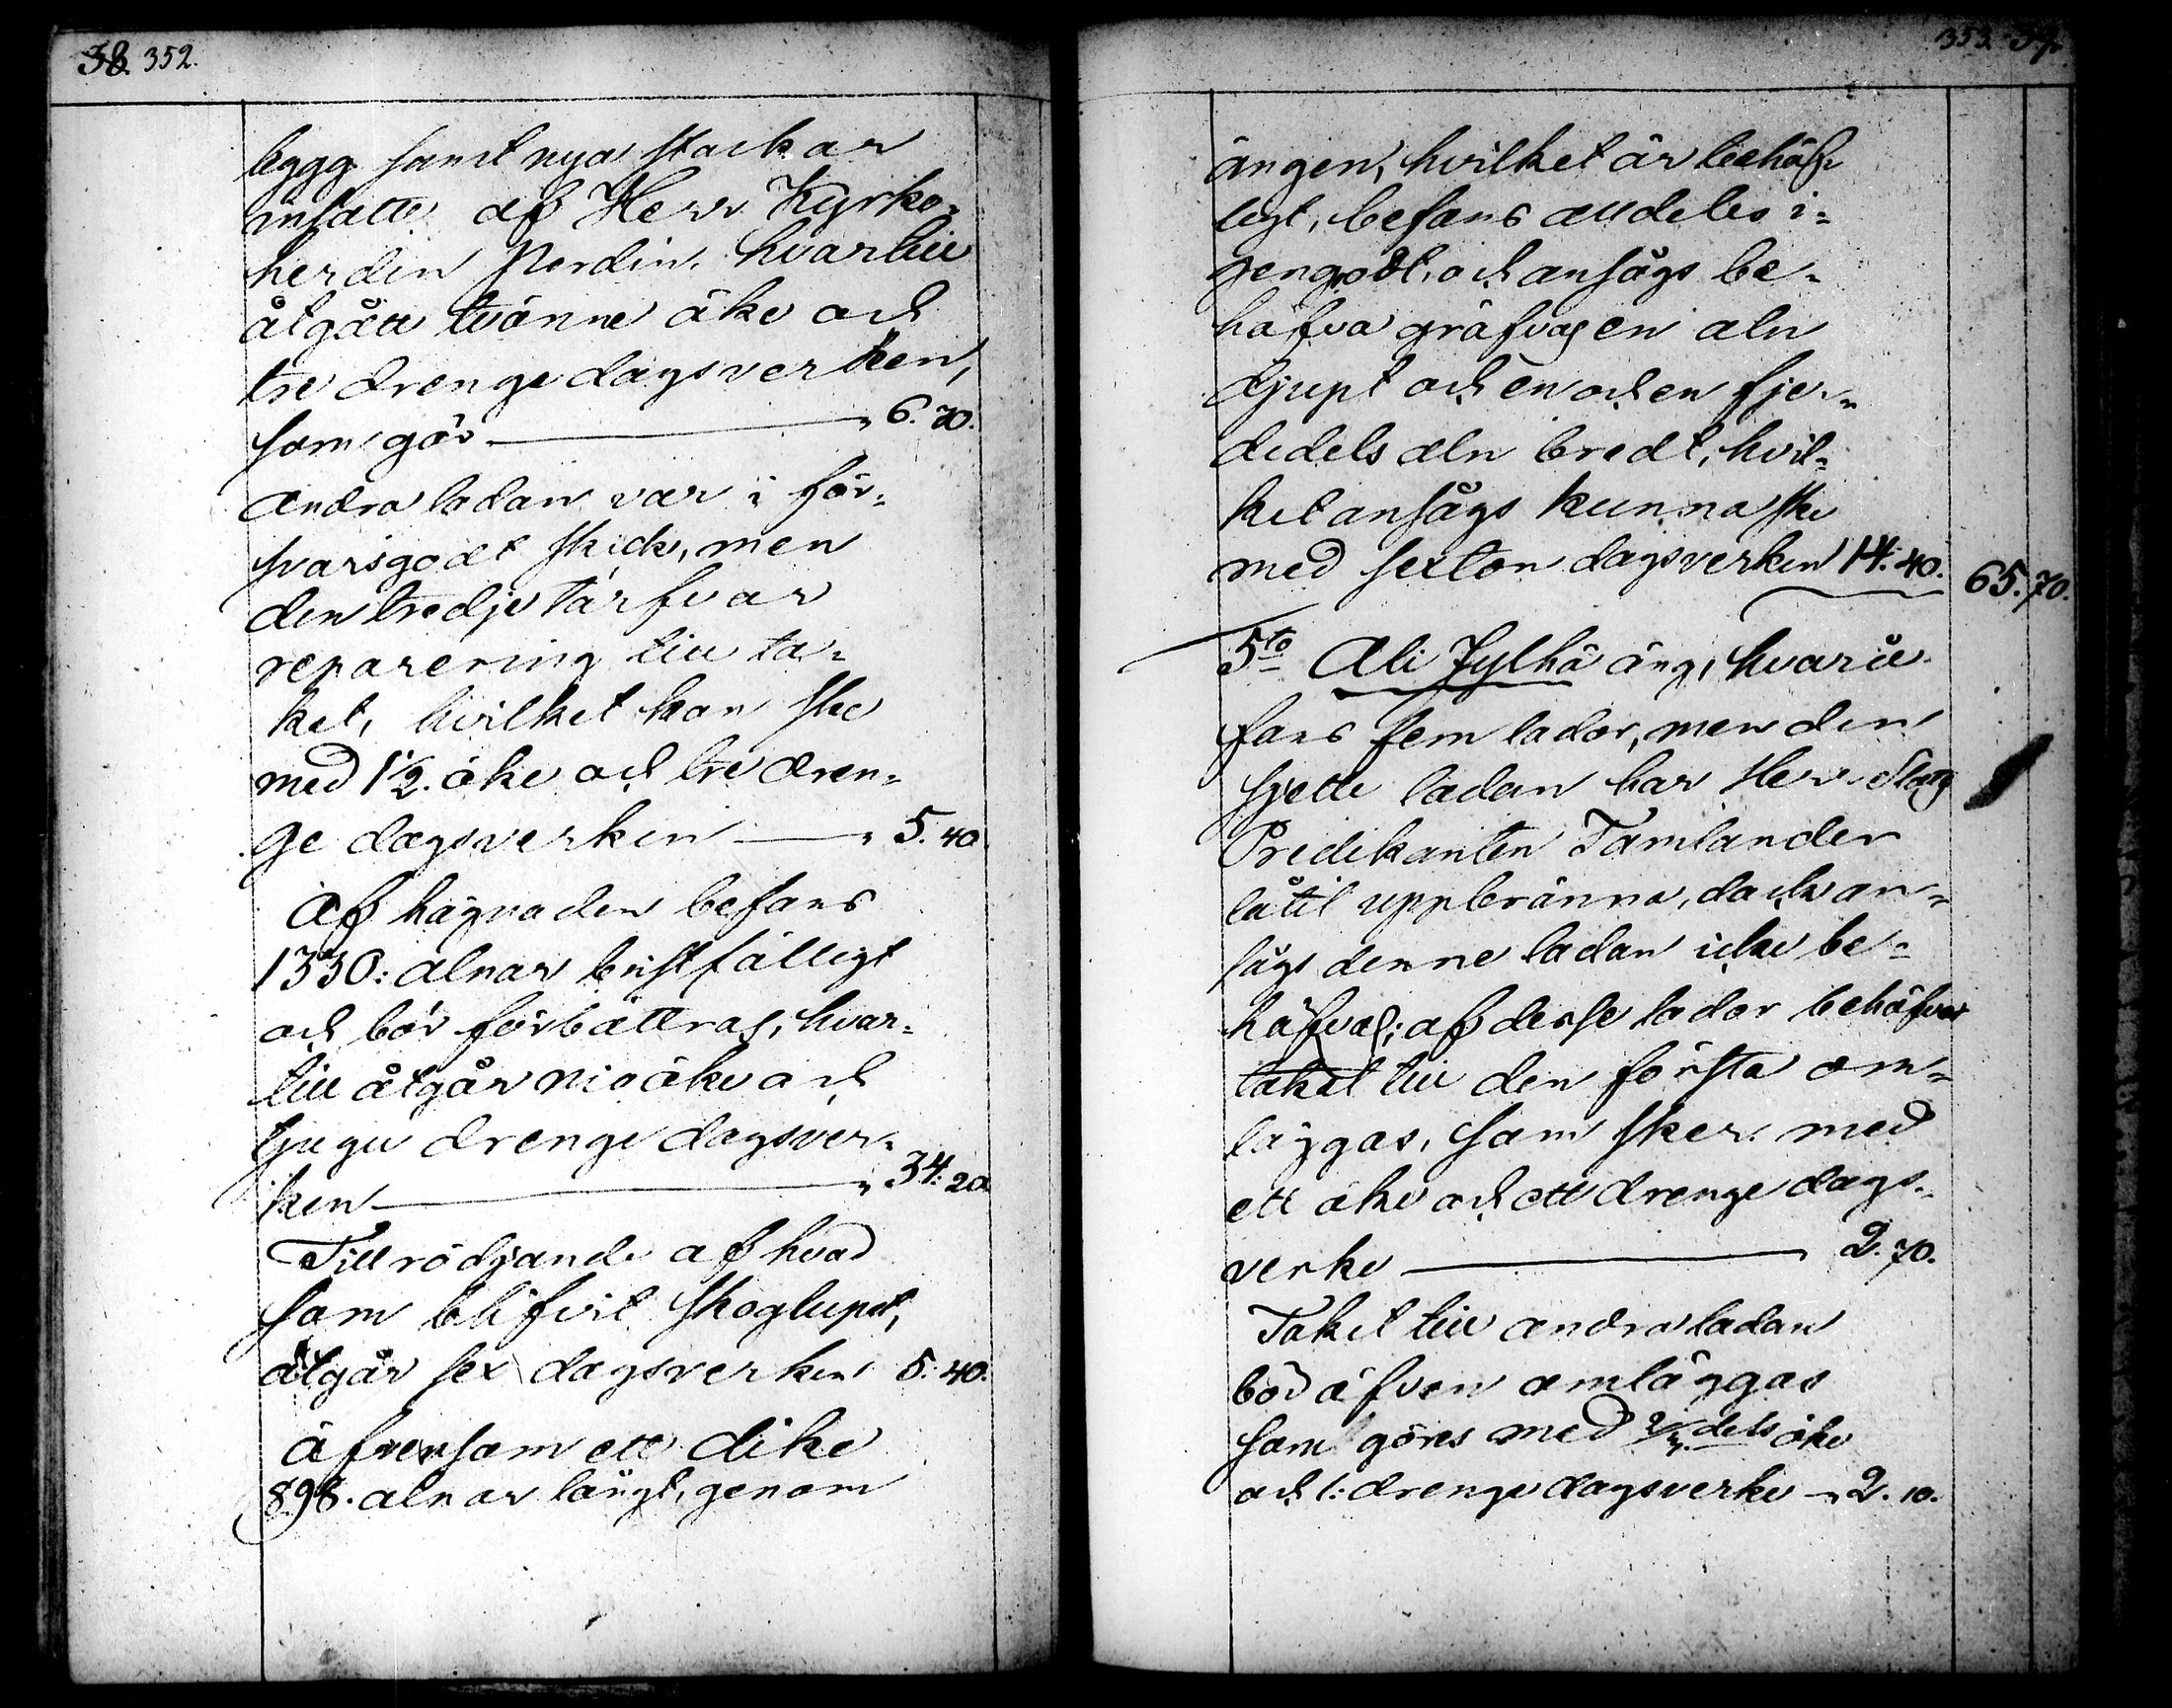 38. 352.
bygg samt nya stockar
insatte af Herr Kyrko-
herden Nordin, hvartill
åtgått tvänne åke och
tre drenge dagsverken,
som gör " 6. 70.
Andra ladan var i för-
svarsgodt skick, men
den tredje tarfvar
reparering till ta-
ket, hvilket kan ske
med 1 1/2. åke och tre dren-
ge dagsverken " 5. 40.
Af hägnaden befans
1330: alnar bristfälligt
och bör förbättras, hvar-
till åtgår nio åke och
tjugu drenge dagsver-
ken " 34: 20
Till rödjande af hvad
som blifvit skoglupet,
åtgår sex dagsverken 5: 40.
äfvensom ett dike
898. alnar långt, genom
353. 39.
ängen, hvilket är behöf-
ligt, befans alldeles i-
gengodt, och ansågs be-
höfva gräfvas en aln
djupt och en och en fjer-
dedels aln bredt, hvil-
ket ansågs kunna ske
med sexton dagsverken 14: 40. 65. 70.
5to Ali Jylhä äng, hvaråe
fans fem lador, men den
sjette ladan har Herr
Predikanten Tamlander
låtit uppbränna, dock an-
sågs denne ladan icke be-
höfvas; af desse lador behöfver
taket till den första om-
läggas, som sker med
ett åke och ett drenge dags-
verke " 2. 70.
Taket till andra ladan
bör äfven omläggas
som göres med 2/3 dels åke
och 1: drenge dagsverke " 2. 10.